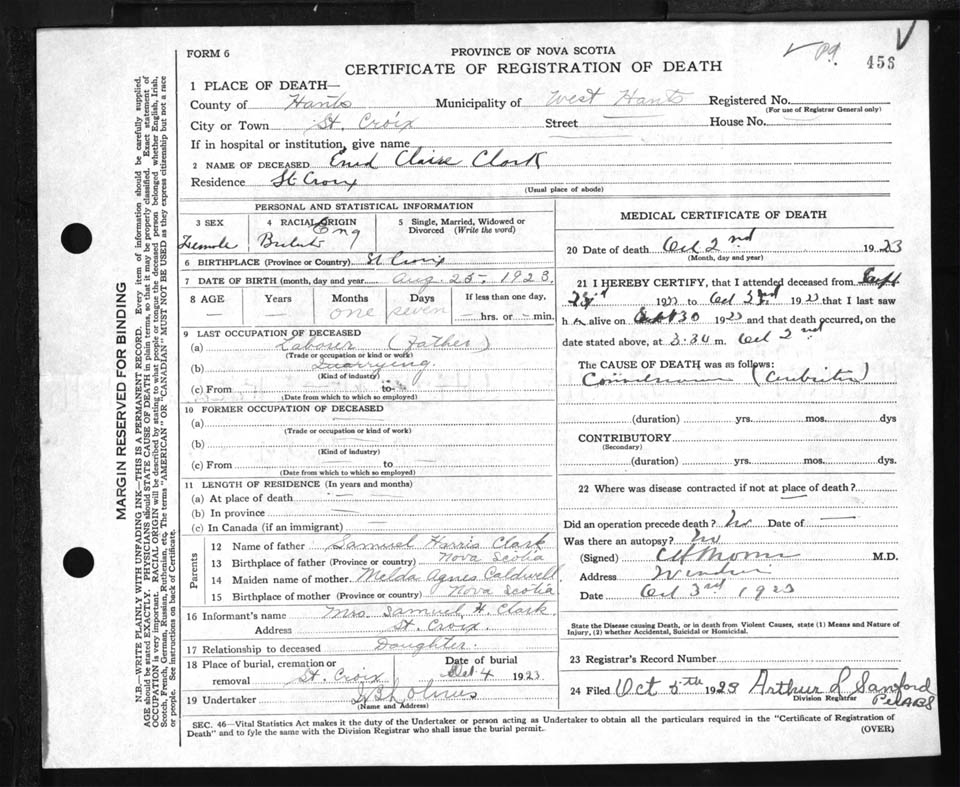 FORM 6
PROVINCE OF NOVA SCOTIA
CERTIFICATE OF REGISTRATION OF DEATH
456
1 PLACE OF DEATH—
County of Hants Municipality of West Hants Registered No.
(For use of Registrar General only)
City or Town St. Croix Street House No.
If in hospital or institution, give name
2 NAME OF DECEASED Enid Claire Clark
Residence St Croix
(Usual place of abode)
PERSONAL AND STATISTICAL INFORMATION
3 SEX 4 RACIAL ORIGIN 5 Single, Married, Widowed or Divorced (Write the word)
Female Eng
6 BIRTHPLACE (Province or Country) St Croix
7 DATE OF BIRTH (month, day and year) Aug. 25. 1923.
8 AGE Years Months Days If less than one day,
— — one seven — hrs. or — min.
9 LAST OCCUPATION OF DECEASED
(a) Labourer (Father)
(Trade or occupation or kind or work)
(b) Quarrying.
(Kind of industry)
(c) From to
(Date from which to which so employed)
10 FORMER OCCUPATION OF DECEASED
(a)
(Trade or occupation or kind of work)
(b)
(Kind of industry)
(c) From to
(Date from which to which so employed)
11 LENGTH OF RESIDENCE (In years and months)
(a) At place of death
(b) In province
(c) In Canada (if an immigrant)
Parents
12 Name of father Samuel Harris Clark
13 Birthplace of father (Province or country) Nova Scotia
14 Maiden name of mother. Melda Agnes Caldwell
15 Birthplace of mother (Province or country) Nova Scotia
16 Informant's name Mrs. Samuel H. Clark
Address St. Croix.
17 Relationship to deceased Daughter.
18 Place of burial, cremation or removal St. Croix Date of burial Oct 4 1923.
19 Undertaker
(Name and Address)
MEDICAL CERTIFICATE OF DEATH
20 Date of death Oct 2nd 1923
(Month, day and year)
21 I HEREBY CERTIFY, that I attended deceased from Sept
1923 to Oct 2nd 1923 that I last saw
h alive on 30 1923 and that death occurred, on the
date stated above, at 3:34 m. Oct 2nd
The CAUSE OF DEATH was as follows:
(duration) yrs. mos. dys
CONTRIBUTORY
(Secondary)
(duration) yrs. mos. dys.
22 Where was disease contracted if not at place of death?
Did an operation precede death? No Date of —
Was there an autopsy? No
(Signed) M.D.
Address Windsor
Date Oct 3rd 1923
State the Disease causing Death, or in death from Violent Causes, state (1) Means and Nature of Injury, (2) whether Accidental, Suicidal or Homicidal.
23 Registrar's Record Number
24 Filed Oct 5th 1923 Arthur L Sanford
Division Registrar
SEC. 46—Vital Statistics Act makes it the duty of the Undertaker or person acting as Undertaker to obtain all the particulars required in the "Certificate of Registration of Death" and to fyle the same with the Division Registrar who shall issue the burial permit.
(OVER)
MARGIN RESERVED FOR BINDING
N.B.—WRITE PLAINLY WITH UNFADING INK—THIS IS A PERMANENT RECORD. Every item of information should be carefully supplied.
AGE should be stated EXACTLY. PHYSICIANS should STATE CAUSE OF DEATH in plain terms, so that it may be properly classified. Exact statement of
OCCUPATION is very important. RACIAL ORIGIN will be described by stating to what people or tongue the deceased person belonged whether English, Irish,
Scotch, French, German, Russian, Ruthenian, etc. The terms "AMERICAN" OR "CANADIAN" MUST NOT BE USED as they express citizenship but not a race
or people. See instructions on back of Certificate.